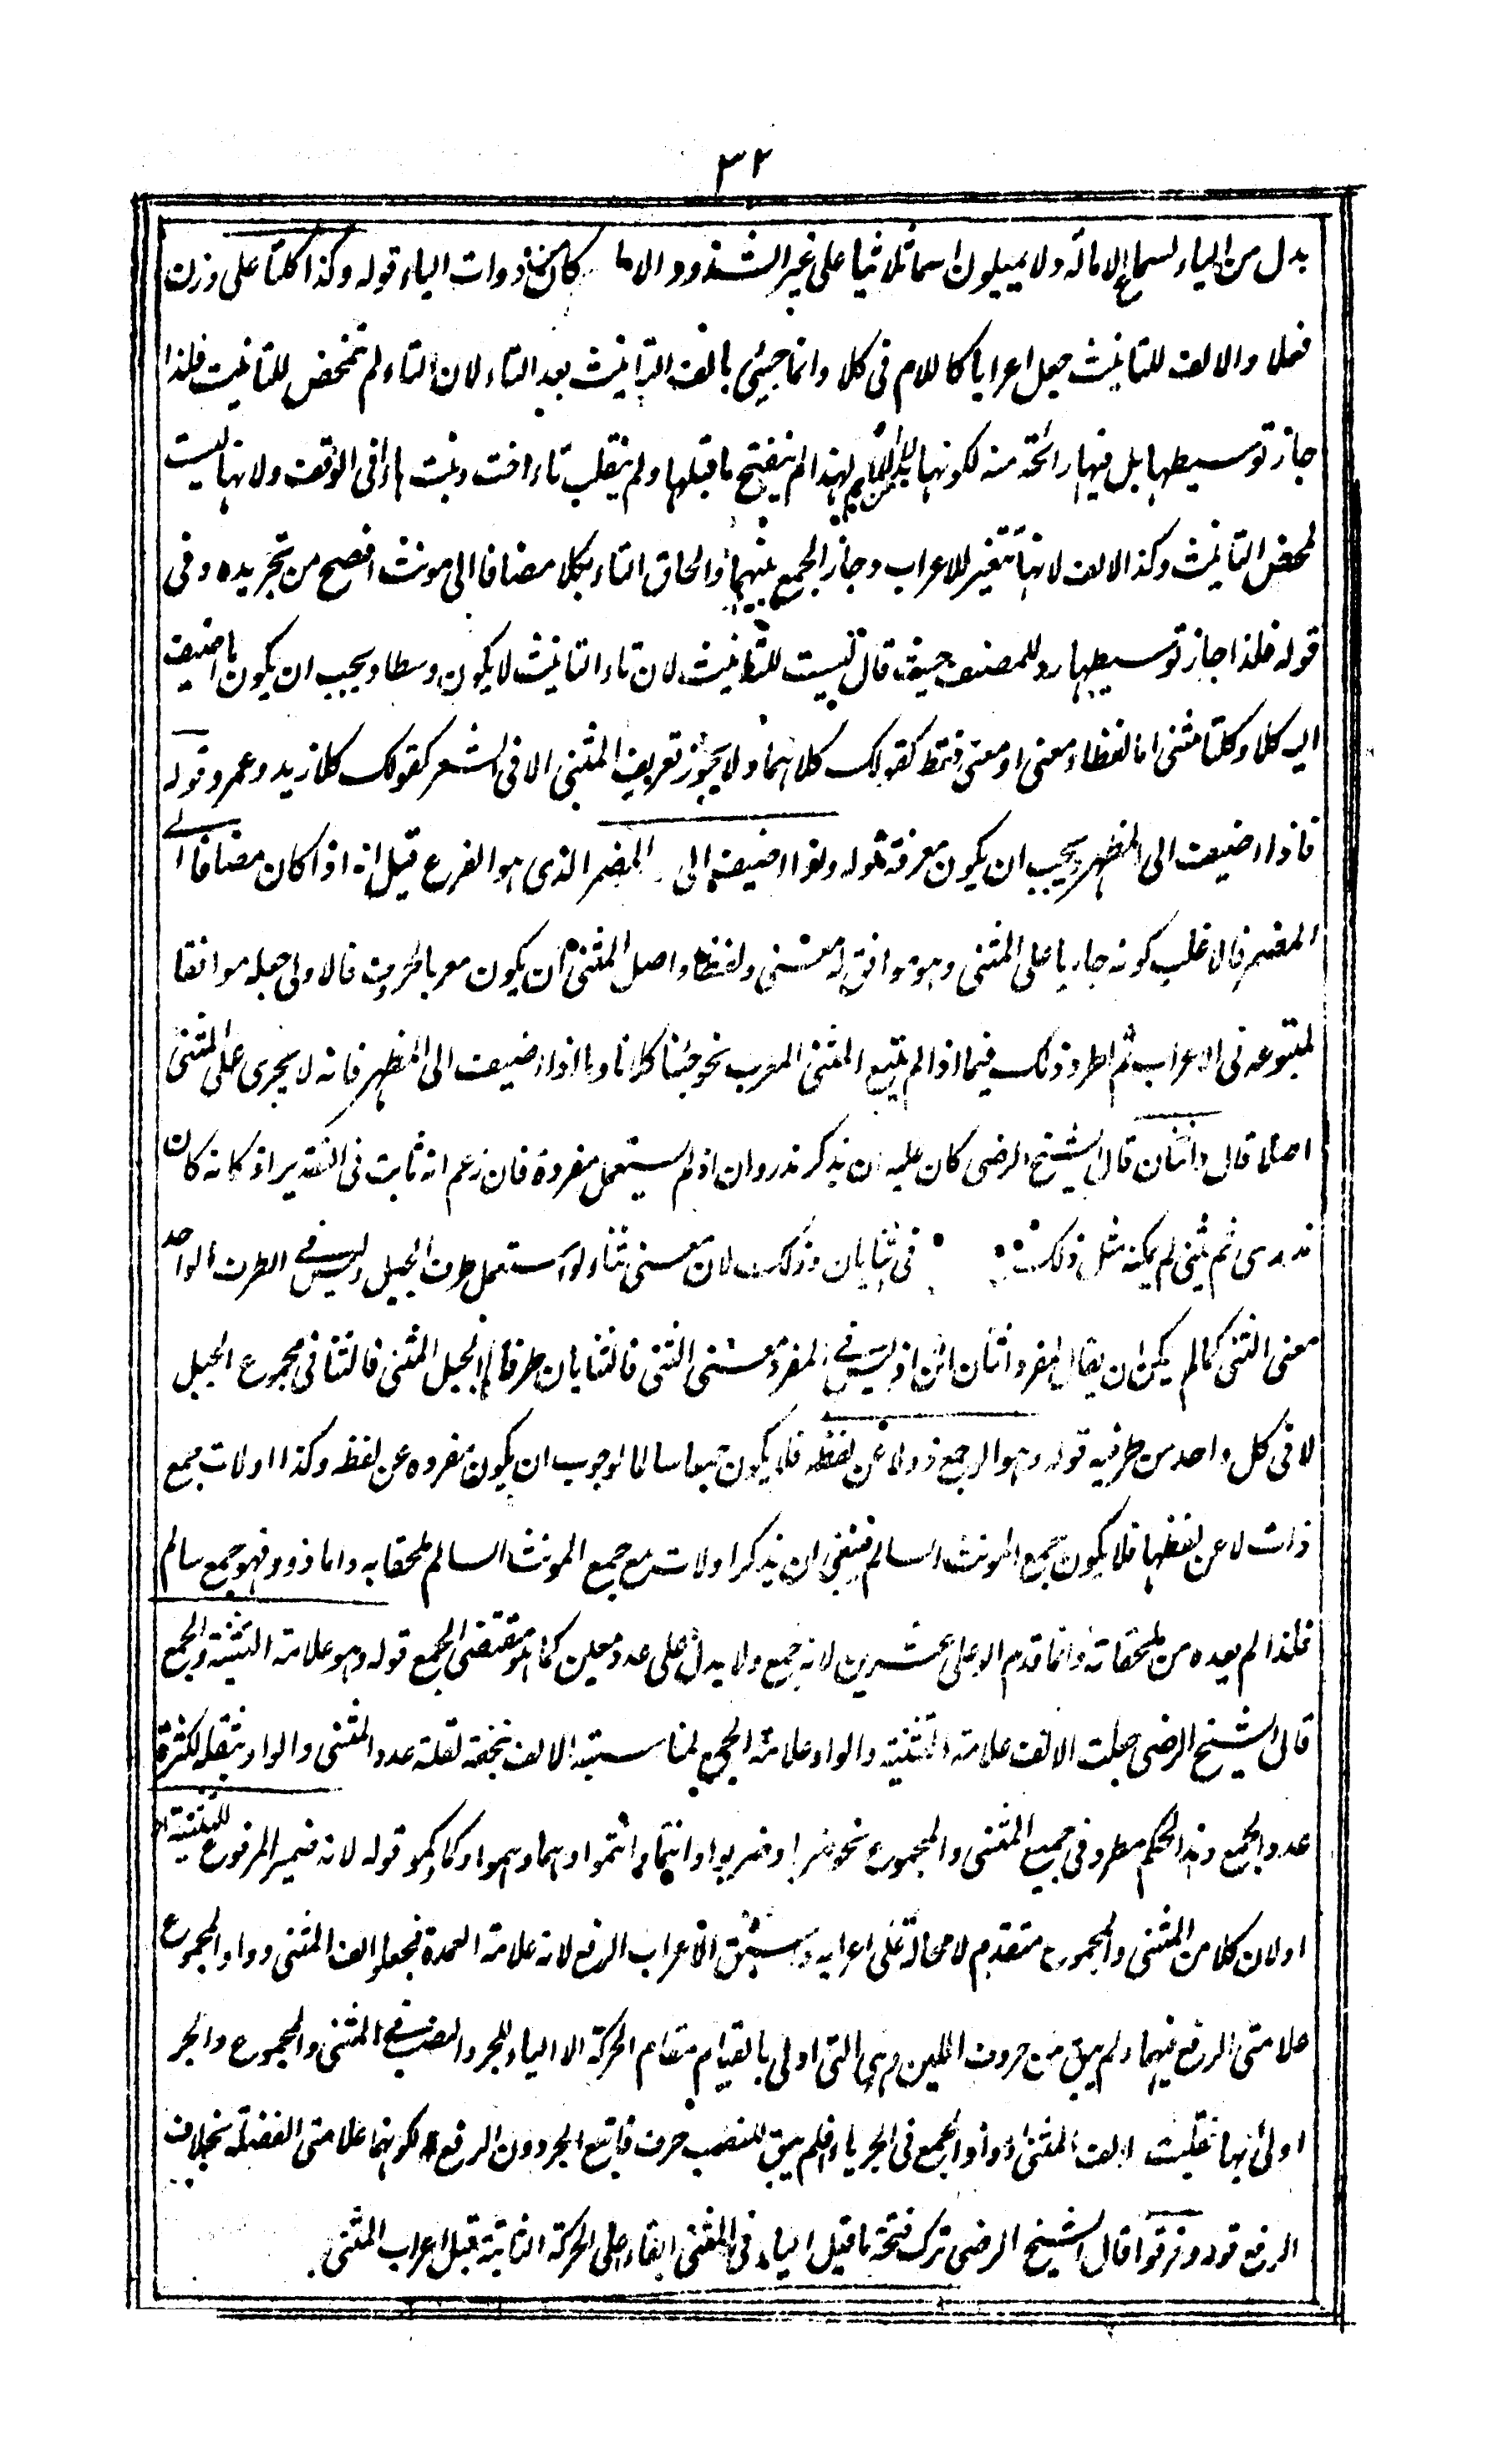 ٣٢
بدل من الياء لسماع الامالة ولا يميلون اسما ثلاثيا على غير الشذوذ والا ما كان من ذوات الياء قوله وكذا كلتا على وزن
فعلا والالف للتانيث جعل اعرابا كاللام فى كلا وانما جيئ بالف التانيث بعد التاء لان التاء لم تتمحض للتانيث فلذا
جاز توسيطها بل فيها رائحة منه لكونها بدل اللام لهذا لم ينفتح ما قبلها ولم ينقلب تاء اخت وبنت هاء فى الوقف ولانها ليست
لمحض التانيث وكذا الالف لانها تتغير للاعراب وجاز الجمع بينهما والحاق التاء بكلا مضافا الى مونث افصح من تجريده وفى
قوله فلذا جاز توسيطها رد للمصنف حيث قال ليست للتانيث لان تاء التانيث لا يكون وسطا ويجب ان يكون ما اضيف
اليه كلا وكلتا مثنى اما لفظا ومعنى او معنى فقط كقولك كلاهما ولا يجوز تعريف المثنى الا فى الشعر كقولك كلا زيد وعمرو قوله
فاذا اضيف الى المظهر ويجب ان يكون معرفة قوله واذا اضيف الى المضمر الذى هو الفرع قيل انه اذا كان مضافا الى
المضمر فالاغلب كونه جاريا على المثنى وهو موافق له معنى ولفظا واصل المثنى ان يكون معربا بالحروف فالاولى جعله موافقا
لمتبوعه فى الاعراب ثم اطرد ذلك فيما اذا لم يتبع المثنى المعرب نحو جئنا كلانا واما اذا اضيف الى المظهر فانه لا يجرى على المثنى
اصلا قال واثنان قال الشيخ الرضى كان عليه ان يذكر مذروان اذ لم يستعمل مفرده فان زعم انه ثابت فى التقدير اذ كانه كان
مذرى ثم ثنى لم يمكنه مثل ذلك فى ثنايان وذلك لان معنى ثناء لو استعمل طرف الحبل وليس فى الطرف الواحد
معنى الثنى كما لم يمكن ان يقال لمفرد اثنان اثن اذ ليس فى المفرد معنى الثنى فالثنايان طرفا الحبل المثنى فالثنا فى مجموع الحبل
لا فى كل واحد من طرفيه قوله وهو الو جمع ذو لا عن لفظه فلا يكون جمعا سالما لوجوب ان يكون مفرده عن لفظه وكذا اولات جمع
ذات لا عن لفظها فلا يكون جمع المونث السالم فينبغى ان يذكر اولات مع جمع المونث السالم ملحقا به واما ذوو فهو جمع سالم
فلذا لم يعده من ملحقاته وانما قدم الو على عشرين لانه جمع ولا يدل على عدد معين كما هو مقتضى الجمع قوله وهو علامة التثنية والجمع
قال الشيخ الرضى جعلت الالف علامة التثنية والواو علامة الجمع لمناسبة الالف بخفته لقلة عدد المثنى والواو بثقله لكثرة
عدد الجمع وهذا الحكم مطرد فى جميع المثنى والمجموع نحو ضربا وضربوا وانتما وانتموا وهما وهموا وكما وكمو قوله لانه ضمير المرفوع للتثنية
او لان كلا من المثنى والمجموع متقدم لا محالة على اعرابه واسبق الاعراب الرفع لانه علامة العمدة فجعلوا الف المثنى وواو المجموع
علامتى الرفع فيهما ولم يبق من حروف اللين وهى التى اولى بالقيام مقام الحركة الا الياء للجر والنصب فى المثنى والمجموع والجر
اولى بها فقلبت الف المثنى وواو الجمع فى الجر ياء فلم يبق للنصب حرف فاتبع الجر دون الرفع لكونهما علامتى الفضلة بخلاف
الرفع قوله وفرقوا قال الشيخ الرضى ترك فتحة ما قبل الياء فى المثنى ابقاء على الحركة الثابتة قبل اعراب المثنى